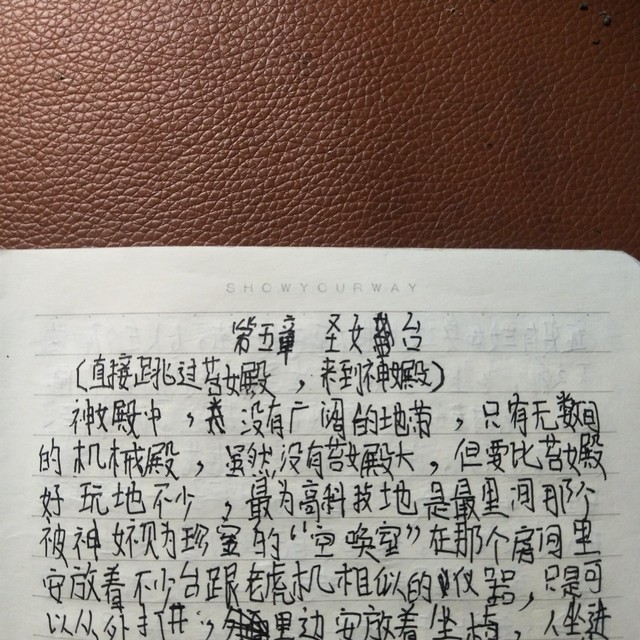 SHOWYOURWAY
第五章 圣女台
(直接跳过苔女殿，来到神女殿)
神女殿中，没有广阔的地带，只有无数间
的机械殿，虽然没有苔女殿大，但要比苔女殿
好玩地不少，最为高科技地是最里间那个
被神女视为珍宝的“空唤室”在那个房间里
安放着不少台跟老虎机相似的仪器，只是可
以从外打开，里边安放着坐椅，人坐进